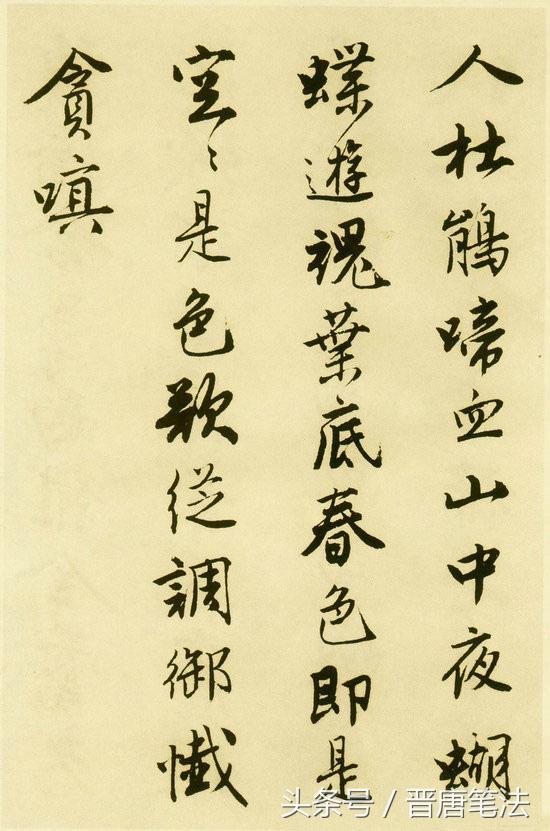 人杜鵑啼血山中夜蝴
蝶遊魂葉底春色即是
空〻是色欵從調御懺
貪嗔
头条号／晋唐笔法